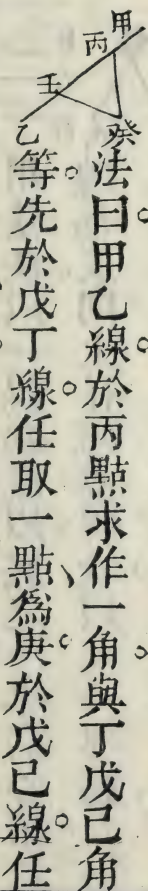 甲
丙
壬
乙
癸
法曰甲乙線。於丙點求作一角。與丁戊己角
等。先於戊丁線。任取一點、為庚。於戊己線。任